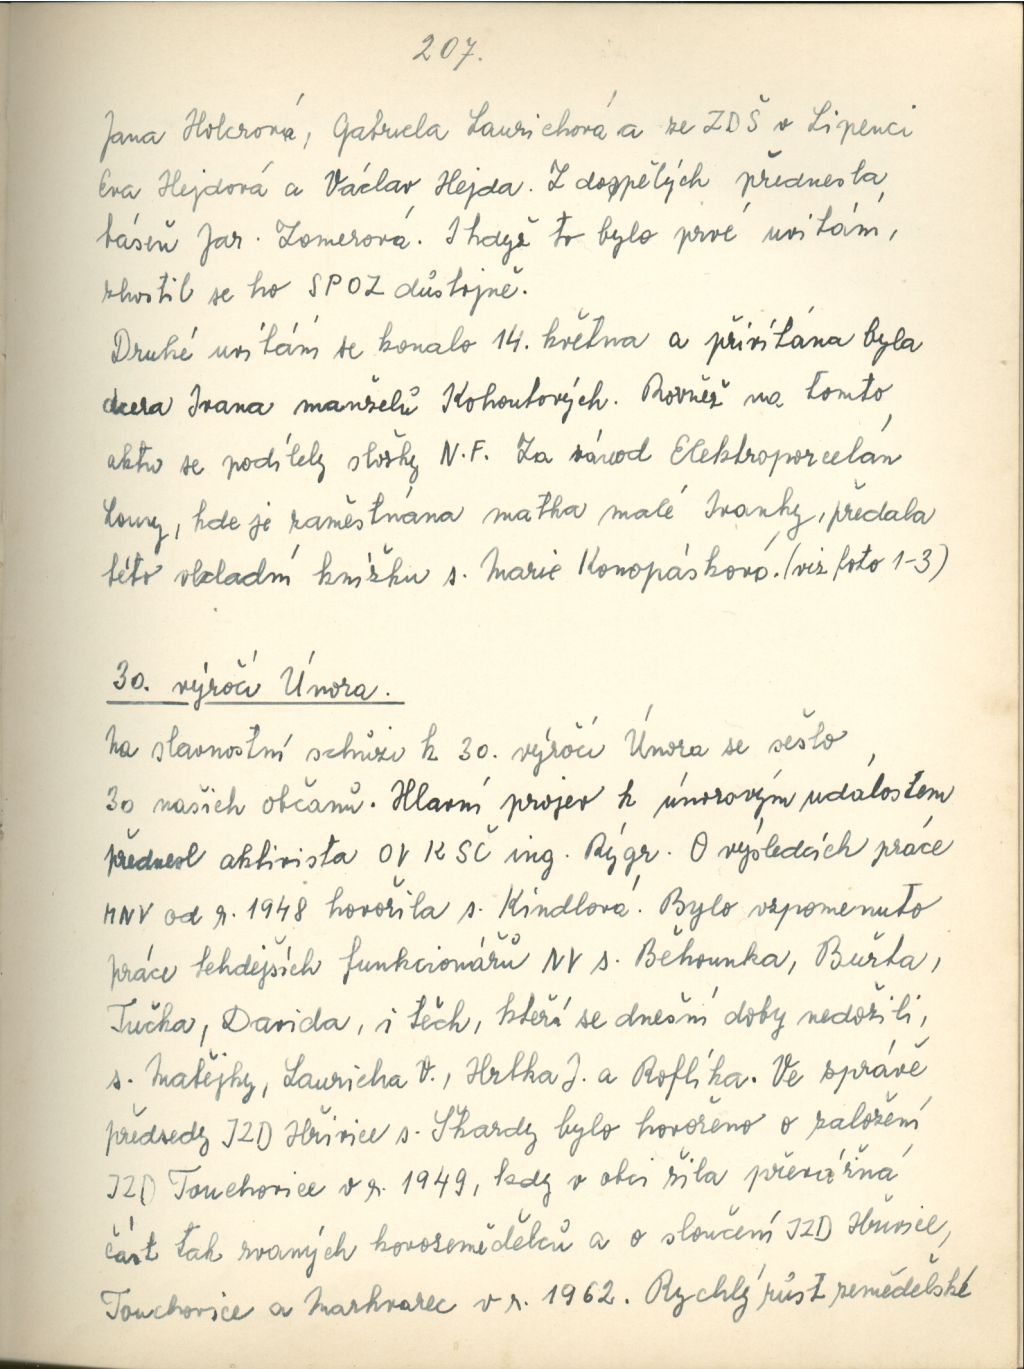 207.
Jana Holcrová, Gabriela Laurichová a ze ZDŠ v Lipenci
Eva Hejdová a Václav Hejda. Z dospělých přednesla
báseň Jar. Zomerová. I když to bylo prvé uvítání,
zhostil se ho SPOZ důstojně.
Druhé uvítání se konalo 14. května a přivítána byla
dcera Ivana manželů Kohoutových. Rovněž na tomto
aktu se podílely složky N.F. Za závod Elektroporcelán
Louny, kde je zaměstnána matka malé Ivanky, předala
této vkladní knížku s. Marie Konopásková. (viz foto 1-3)
30. výročí Února.
Na slavnostní schůzi k 30. výročí Února se sešlo
30 našich občanů. Hlavní projev k únorovým událostem
přednesl aktivista OV KSČ ing. Rýgr. O výsledcích práce
MNV od r. 1948 hovořila s. Kindlová. Bylo vzpomenuto
práce tehdejších funkcionářů NV s. Běhounka, Buršta,
Tučka, Davida, i těch, kteří se dnešní doby nedožili,
s. Matějky, Lauricha V., Hrtka J. a Roflíka. Ve zprávě
předsedy JZD Hřivice s. Škardy bylo hovořeno o založení
JZD Touchovice v r. 1949, kdy v obci žila převážná
část tak zvaných kovozemědělců a o sloučení JZD Hřivice,
Touchovice a Markvarec v r. 1962. Rychlý růst zemědělské